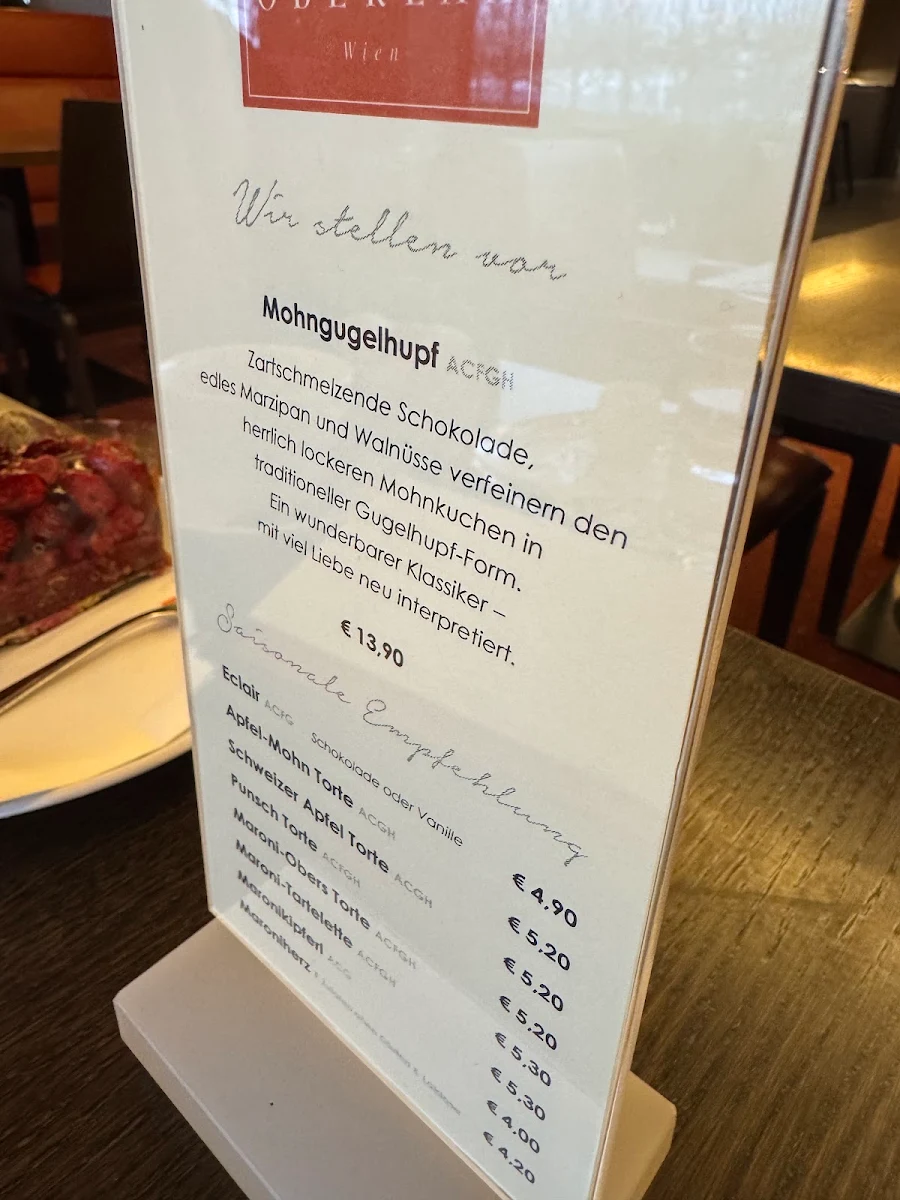 Wien
Wir stellen vor
Mohngugelhupf ACFGH
Zartschmelzende Schokolade,
edles Marzipan und Walnüsse verfeinern den
herrlich lockeren Mohnkuchen in
traditioneller Gugelhupf-Form.
Ein wunderbarer Klassiker –
mit viel Liebe neu interpretiert.
€ 13,90
Saisonale Empfehlung
Eclair ACFG Schokolade oder Vanille € 4,90
Apfel-Mohn Torte ACGH € 5,20
Schweizer Apfel Torte ACGH € 5,20
Punsch Torte ACFGH € 5,20
Maroni-Obers Torte ACFGH € 5,30
Maroni-Tartelette ACFGH € 5,30
Maronikipferl € 4,00
Maroniherz € 4,20